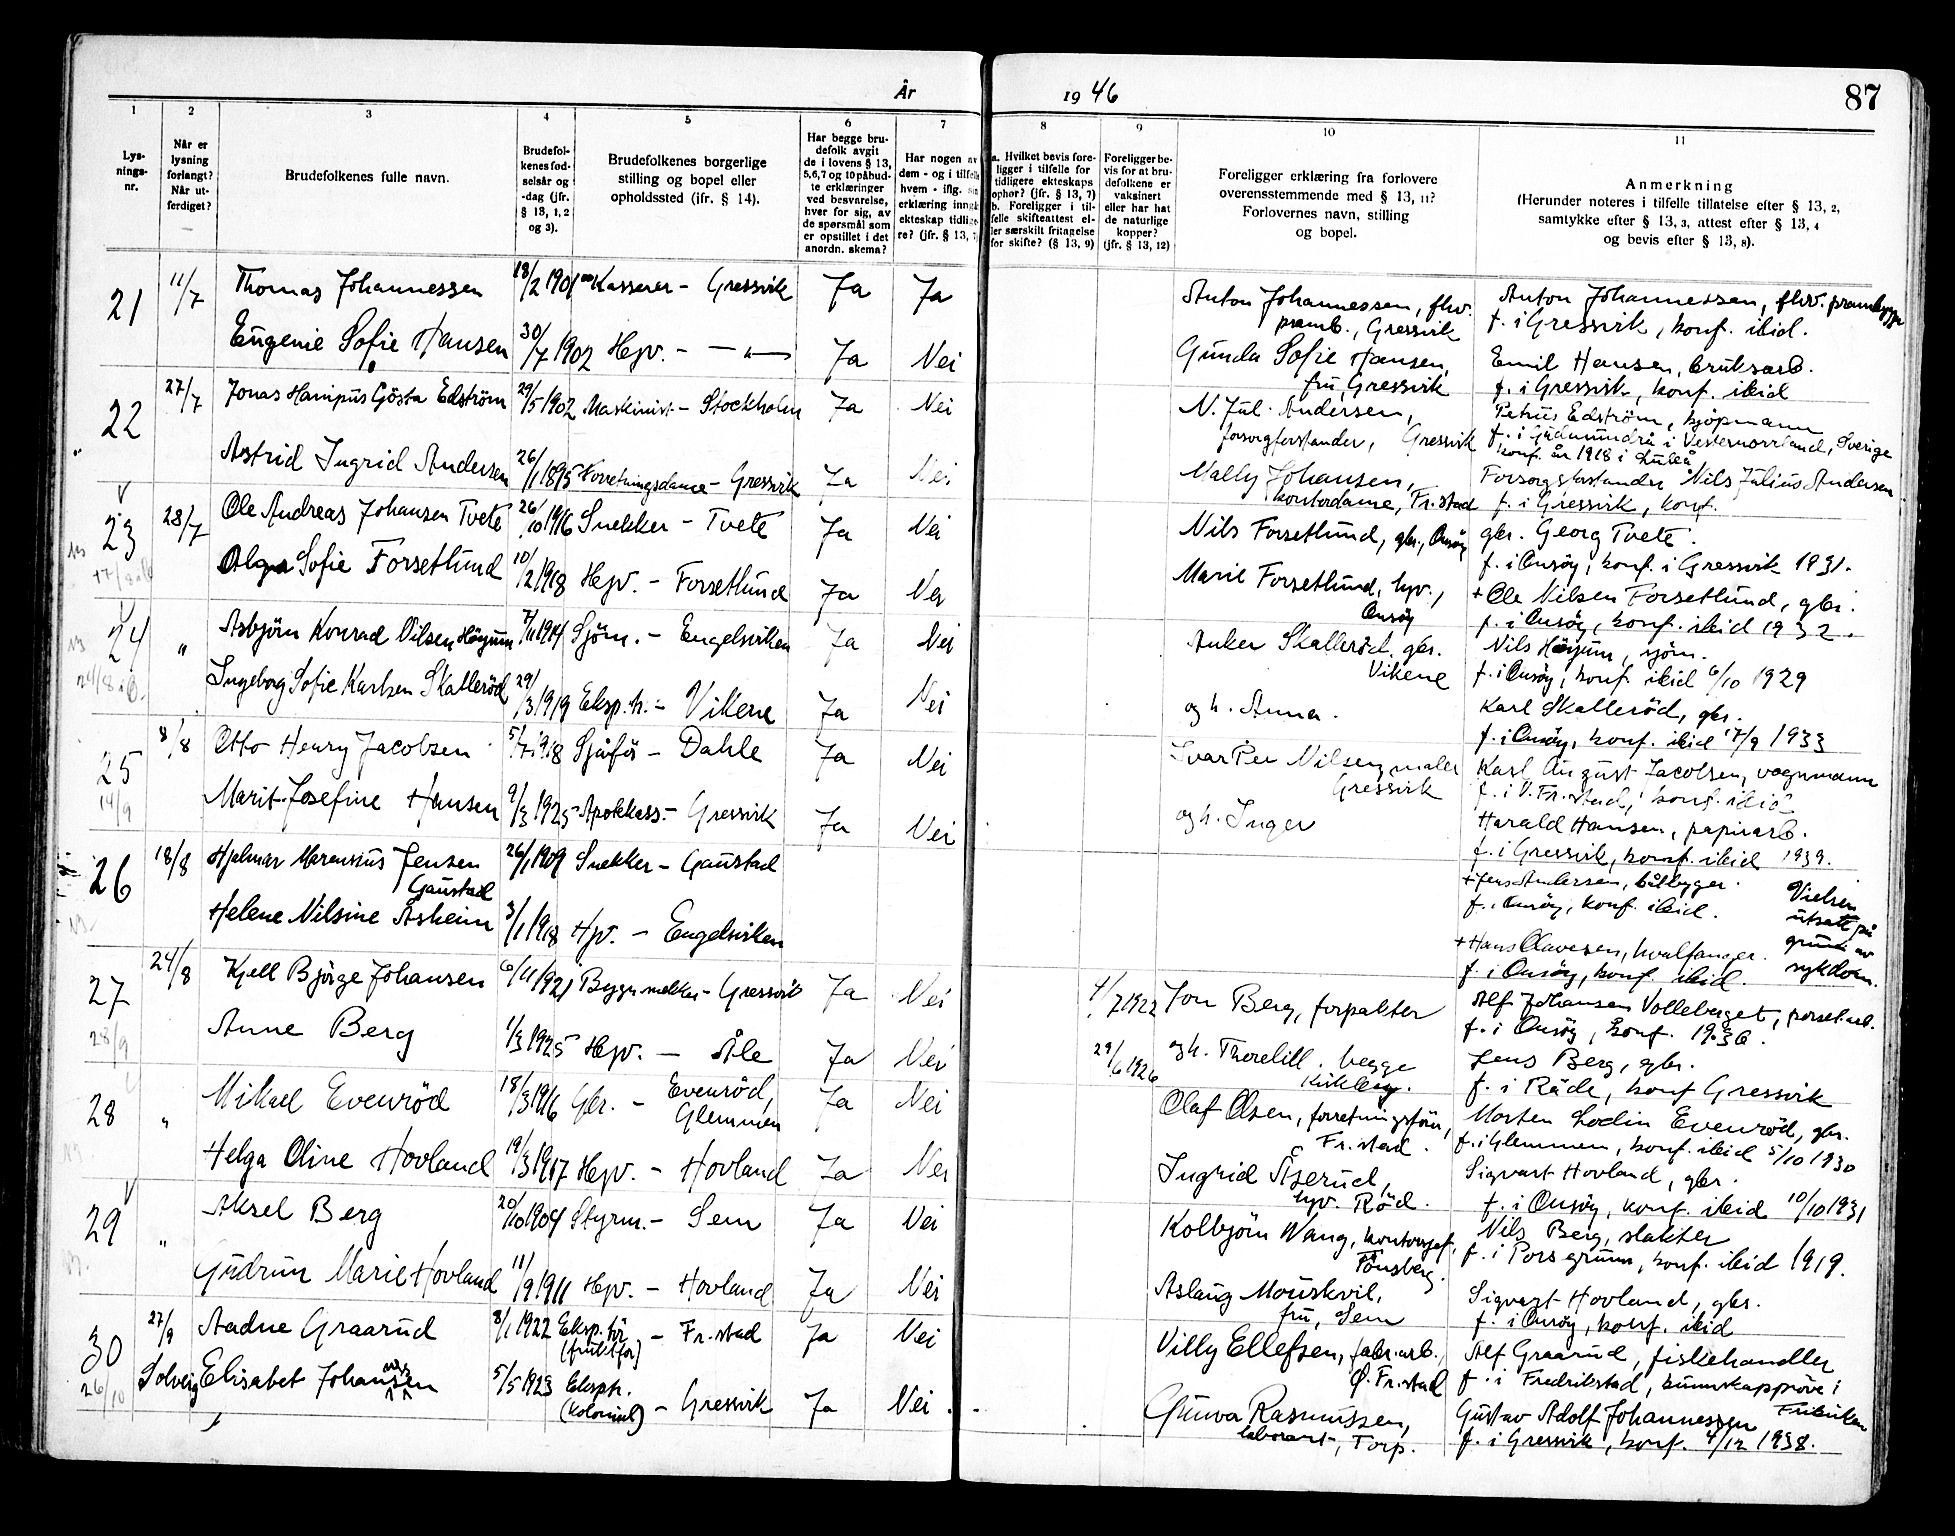 År 1946
87
1 2 3 4 5 6 7 8 9 10 11
Lysnings-nr.
Når er lysning forlangt? Når utferdiget?
Brudefolkenes fulle navn.
Brudefolkenes fødselsår og -dag (jfr. § 13, 1, 2 og 3).
Brudefolkenes borgerlige stilling og bopel eller opholdssted (jfr. § 14).
Har begge brudefolk avgit de i lovens § 13, 5, 6, 7 og 10 påbudte erklæringer ved besvarelse, hver for sig, av de spørsmål som er opstillet i det anordn. skema?
Har nogen av dem - og i tilfelle hvem - iflg. sin erklæring inngått ekteskap tidligere? (jfr. § 13, 7)
a. Hvilket bevis foreligger i tilfelle for tidligere ekteskaps ophør? (jfr. § 13, 7) b. Foreligger i tilfelle skifteattest eller særskilt fritagelse for skifte? (§ 13, 9)
Foreligger bevis for at brudefolkene er vaksinert eller har hat de naturlige kopper? (jfr. § 13, 12)
Foreligger erklæring fra forlovere overensstemmende med § 13, 11? Forlovernes navn, stilling og bopel.
Anmerkning (Herunder noteres i tilfelle tillatelse efter § 13, 2, samtykke efter § 13, 3, attest efter § 13, 4 og bevis efter § 13, 8).
21 11/7 Thomas Johannessen 18/2 1901 Kasserer - Gressvik Ja Ja Anton Johannessen, fhv. pramb., Gressvik Anton Johannessen, fhv. prambygger f. i Gressvik, konf. ibid.
Eugenie Sofie Hansen 30/7 1902 Hjv. - — " — Ja Nei Gunda Sofie Hansen, fru, Gressvik Emil Hansen, bruksarb. f. i Gressvik, konf. ibid
22 27/7 Jonas Hampus Gösta Edström 29/5 1902 Maskinist - Stockholm Ja Nei N. Jul. Andersen, forsorgforstander, Gressvik Petrus Edström, kjøpmann f. i Gudmundrå i Vesternorrland, Sverige konf. år 1918 i Luleå
Astrid Ingrid Andersen 26/1 1895 Forretningsdame - Gressvik Ja Nei Mally Johansen, kontordame, Fr.stad Forsorgsforstander Nils Julius Andersen f. i Gressvik, konf.
23 28/7 Ole Andreas Johansen Tvete 26/10 1916 Snekker - Tvete Ja Nei Nils Forsetlund, gbr., Onsøy gbr. Georg Tvete f. i Onsøy, konf. i Gressvik 1931.
Olga Sofie Forsetlund 10/2 1918 Hejv. - Forsetlund Ja Nei Marie Forsetlund, hjv., Onsøy + Ole Nilsen Forsetlund, gbr. f. i Onsøy, konf. ibid 1932.
24 " Asbjörn Konrad Nilsen Höyum 7/11 1914 Sjöm. - Engelsviken Ja Nei Anker Skalleröd, gbr. Vikene Nils Höyum, sjöm. f. i Onsøy, konf. ibid 6/10 1929
Ingeborg Sofie Karlsen Skalleröd 29/3 1919 Eksp.h. - Vikene Ja Nei og h. Anna. Karl Skalleröd, gbr. f. i Onsøy, konf. ibid 17/9 1933
25 8/8 14/9 Otto Henry Jacobsen 5/7 1918 Sjåför - Dahle Ja Nei Ivar Per Nilsen, maler Gressvik Karl August Jacobsen, vognmann f. i V. Fr.stad, konf. ibid
Marit Josefine Hansen 9/3 1925 Apotekass. - Gressvik Ja Nei og h. Inger Harald Hansen, papirarb. f. i Gressvik, konf. ibid 1939.
26 18/8 Hjalmar Marensius Jensen Gaustad 26/1 1909 Snekker - Gaustad + Jens Andersen, båtbygger. f. i Onsøy, konf. ibid. Vielsen utsatt på grunn av sykdom.
Helene Nilsine Åsheim 3/1 1918 Hjv. - Engelsviken + Hans Olavesen, hvalfanger. f. i Onsøy, konf. ibid.
27 24/8 28/9 Kjell Björge Johansen 6/11 1921 Byggn.snekker - Gressvik Ja Nei 1/7 1922 Jon Berg, forpakter Alf Johansen Volleberget, porsel.arb. f. i Onsøy, konf. 1936.
Anne Berg 1/3 1925 Hejv. - Åle Ja Nei 29/6 1926 og h. Thorelill. begge Kirkeberg. Jens Berg, gbr. f. i Råde, konf Gressvik
28 " Mikael Evenröd 18/3 1916 Gbr. - Evenröd, Glemmen Ja Nei Olaf Olsen, forretningsför., Fr.stad. Morten Lodin Evenröd, gbr. f. i Glemmen, konf. ibid 5/10 1930
Helga Oline Hovland 19/3 1917 Hejv. - Hovland Ja Nei Ingrid Åserud, hjv. Röd. Sigvart Hovland, gbr. f. i Onsøy, konf. ibid 10/10 1931
29 " Aksel Berg 20/10 1904 Styrm. - Sem Ja Nei Kolbjörn Wang, kontorsjef, Tönsberg. Nils Berg, slakter f. i Porsgrunn, konf. ibid 1919.
Gudrun Marie Hovland 11/9 1911 Hejv. - Hovland Ja Nei Aslaug Mouskvil, fru, Sem Sigvart Hovland, gbr. f. i Onsøy, konf. ibid
30 27/9 26/10 Aadne Graarud 8/1 1922 Eksp.för (fruktfor) - Fr.stad Ja Nei Villy Ellefsen, fabr.arb., Ø. Fr.stad Alf Graarud, fiskehandler f. i Fredrikstad, kunnskapprøve i
Solveig Elisabet Johannessen 5/5 1923 Eksptr. (kolonial) - Gressvik Ja Nei Gunvor Rasmussen, laborant, Torp. Gustav Adolf Johannessen f. i Gressvik, konf. 4/12 1938.